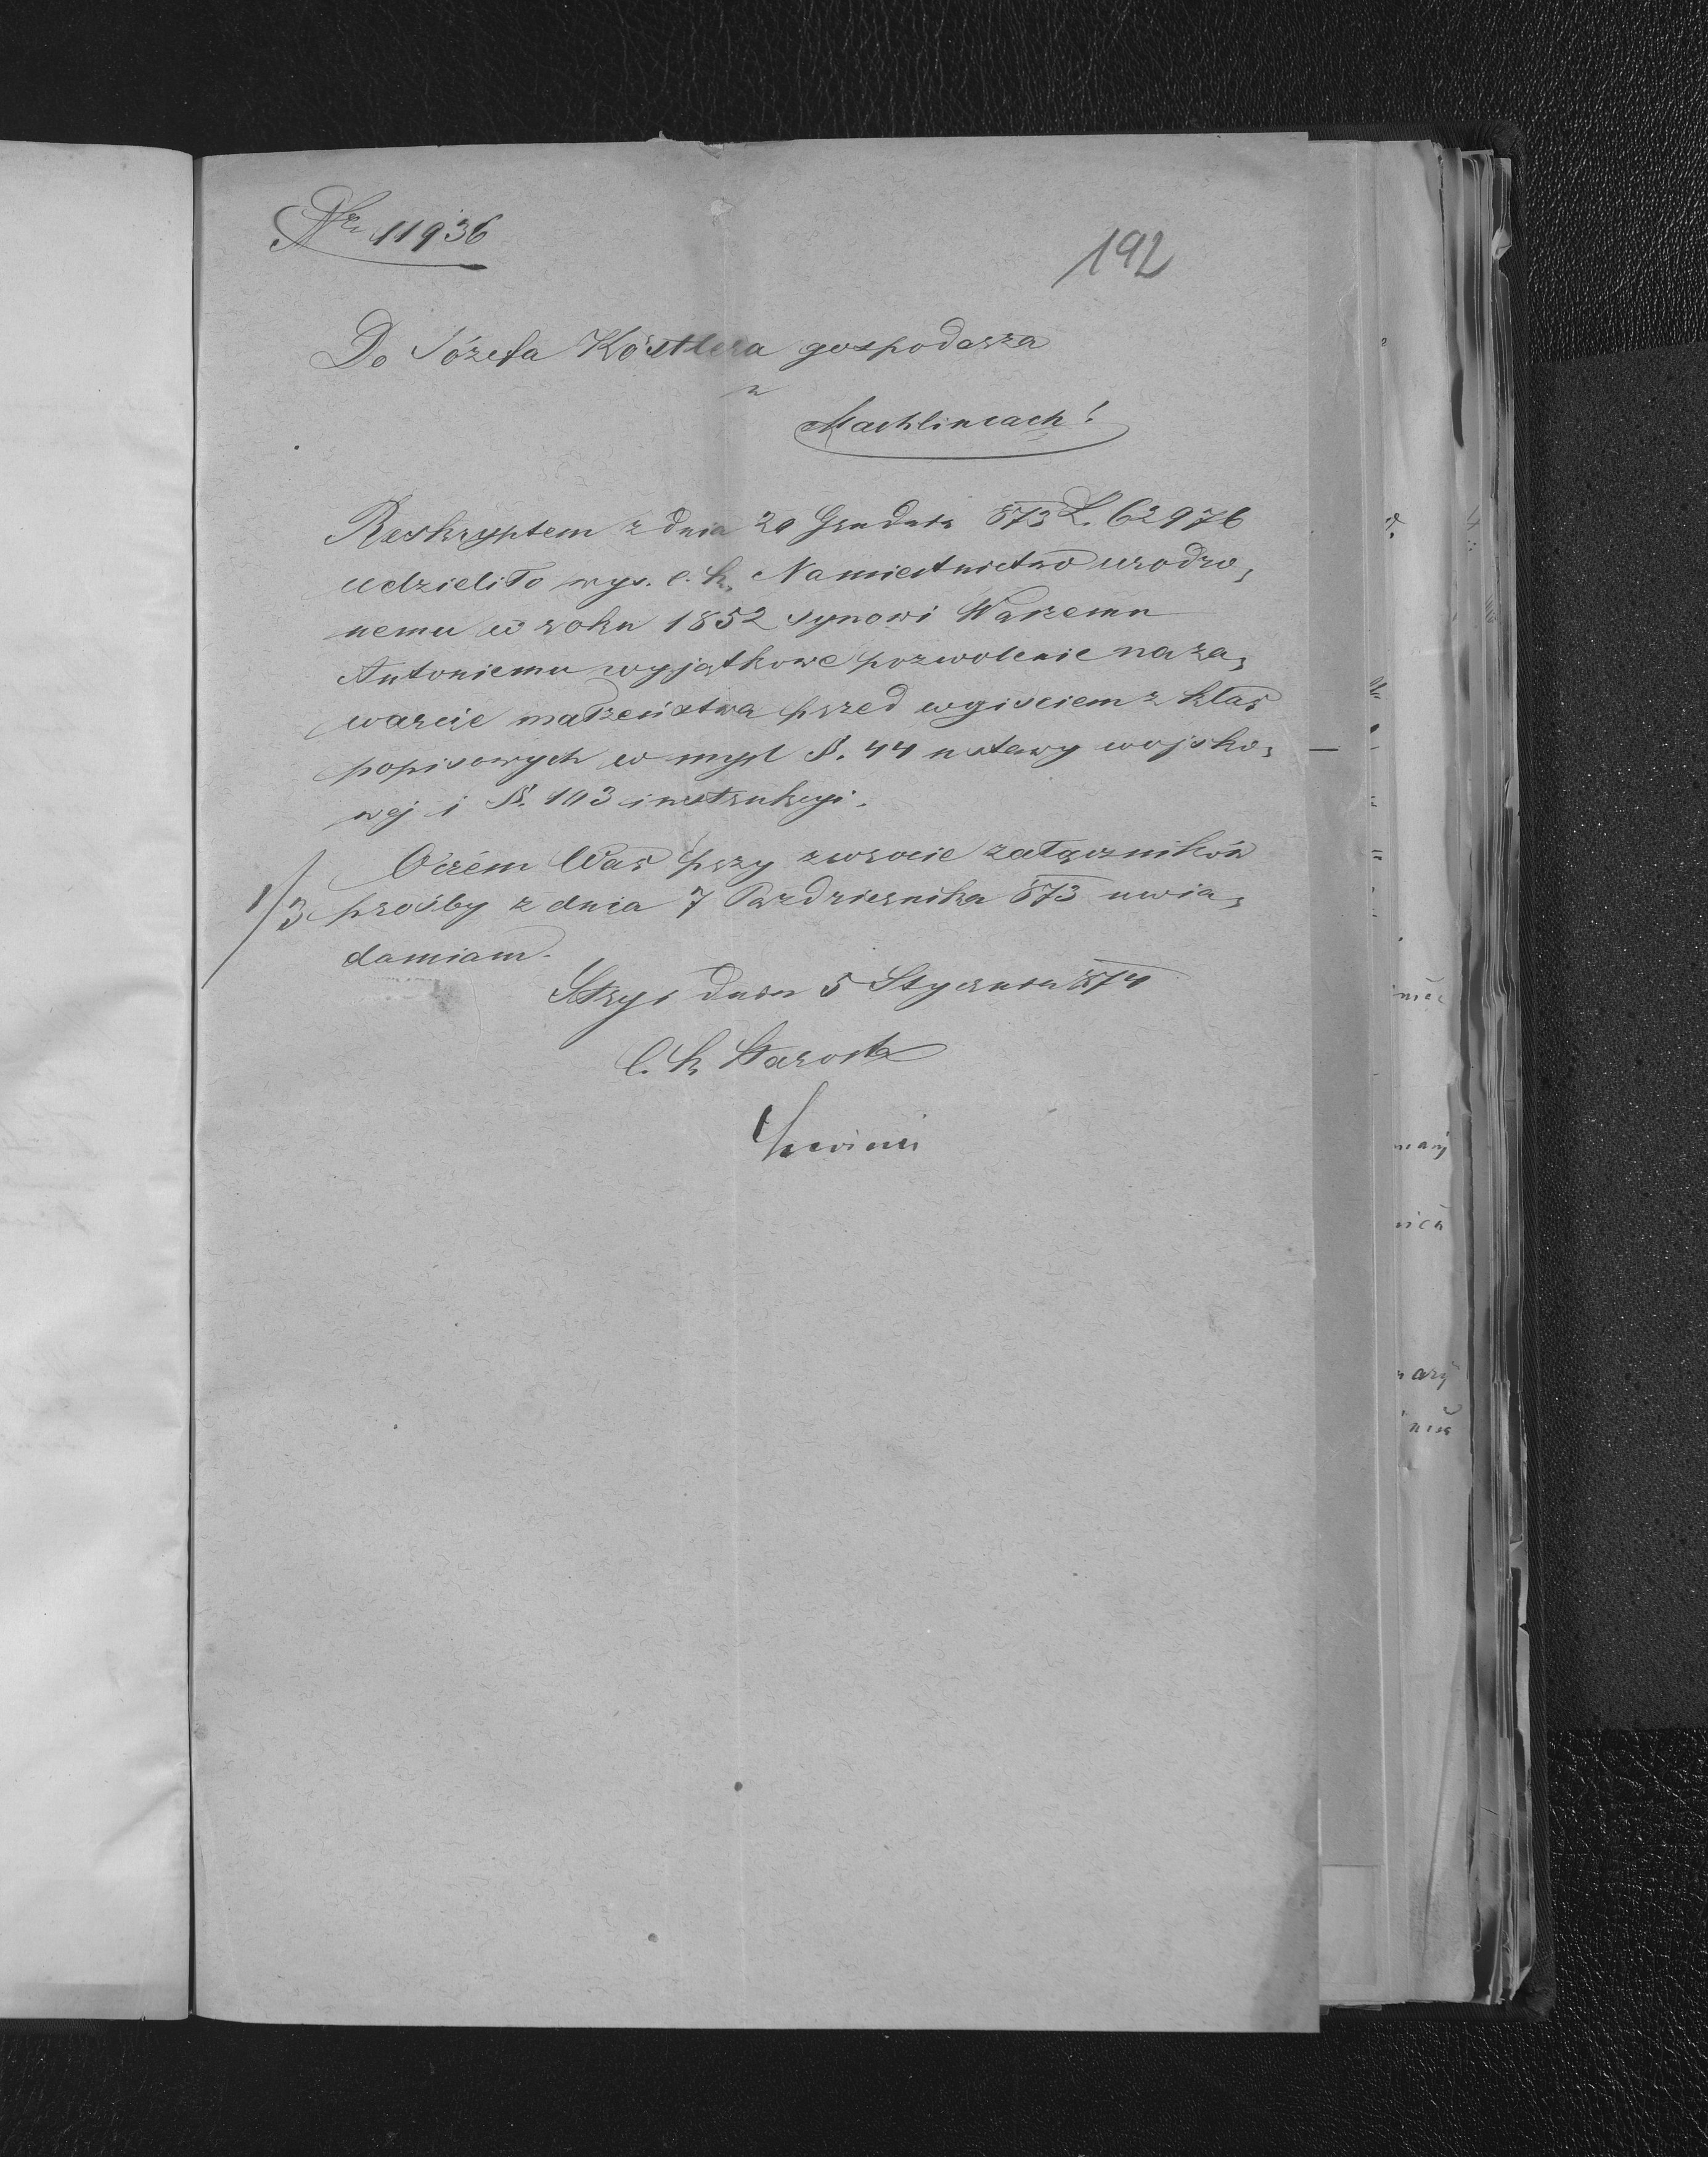 Nr. 11936
192
Do Józefa Köstlera gospodarza
w
Machlincach!
Reskryptem z dnia 20 Grudnia 873 L. 62976
udzieliło wys. c. k. Namiestnictwo urodzo,
nemu w roku 1852 synowi Waszemu
Antoniemu wyjątkowe pozwolenie na za,
warcie małżeństwa przed wyjściem z klas
popisowych w myśl §. 44 ustawy wojsko,
wej i §. 103 instrukcyi.
O czém Was przy zwrocie załączników
1/3 prośby z dnia 7 Października 873 uwia,
damiam.
Stryj dnia 5 Stycznia 874
C. k. Starosta